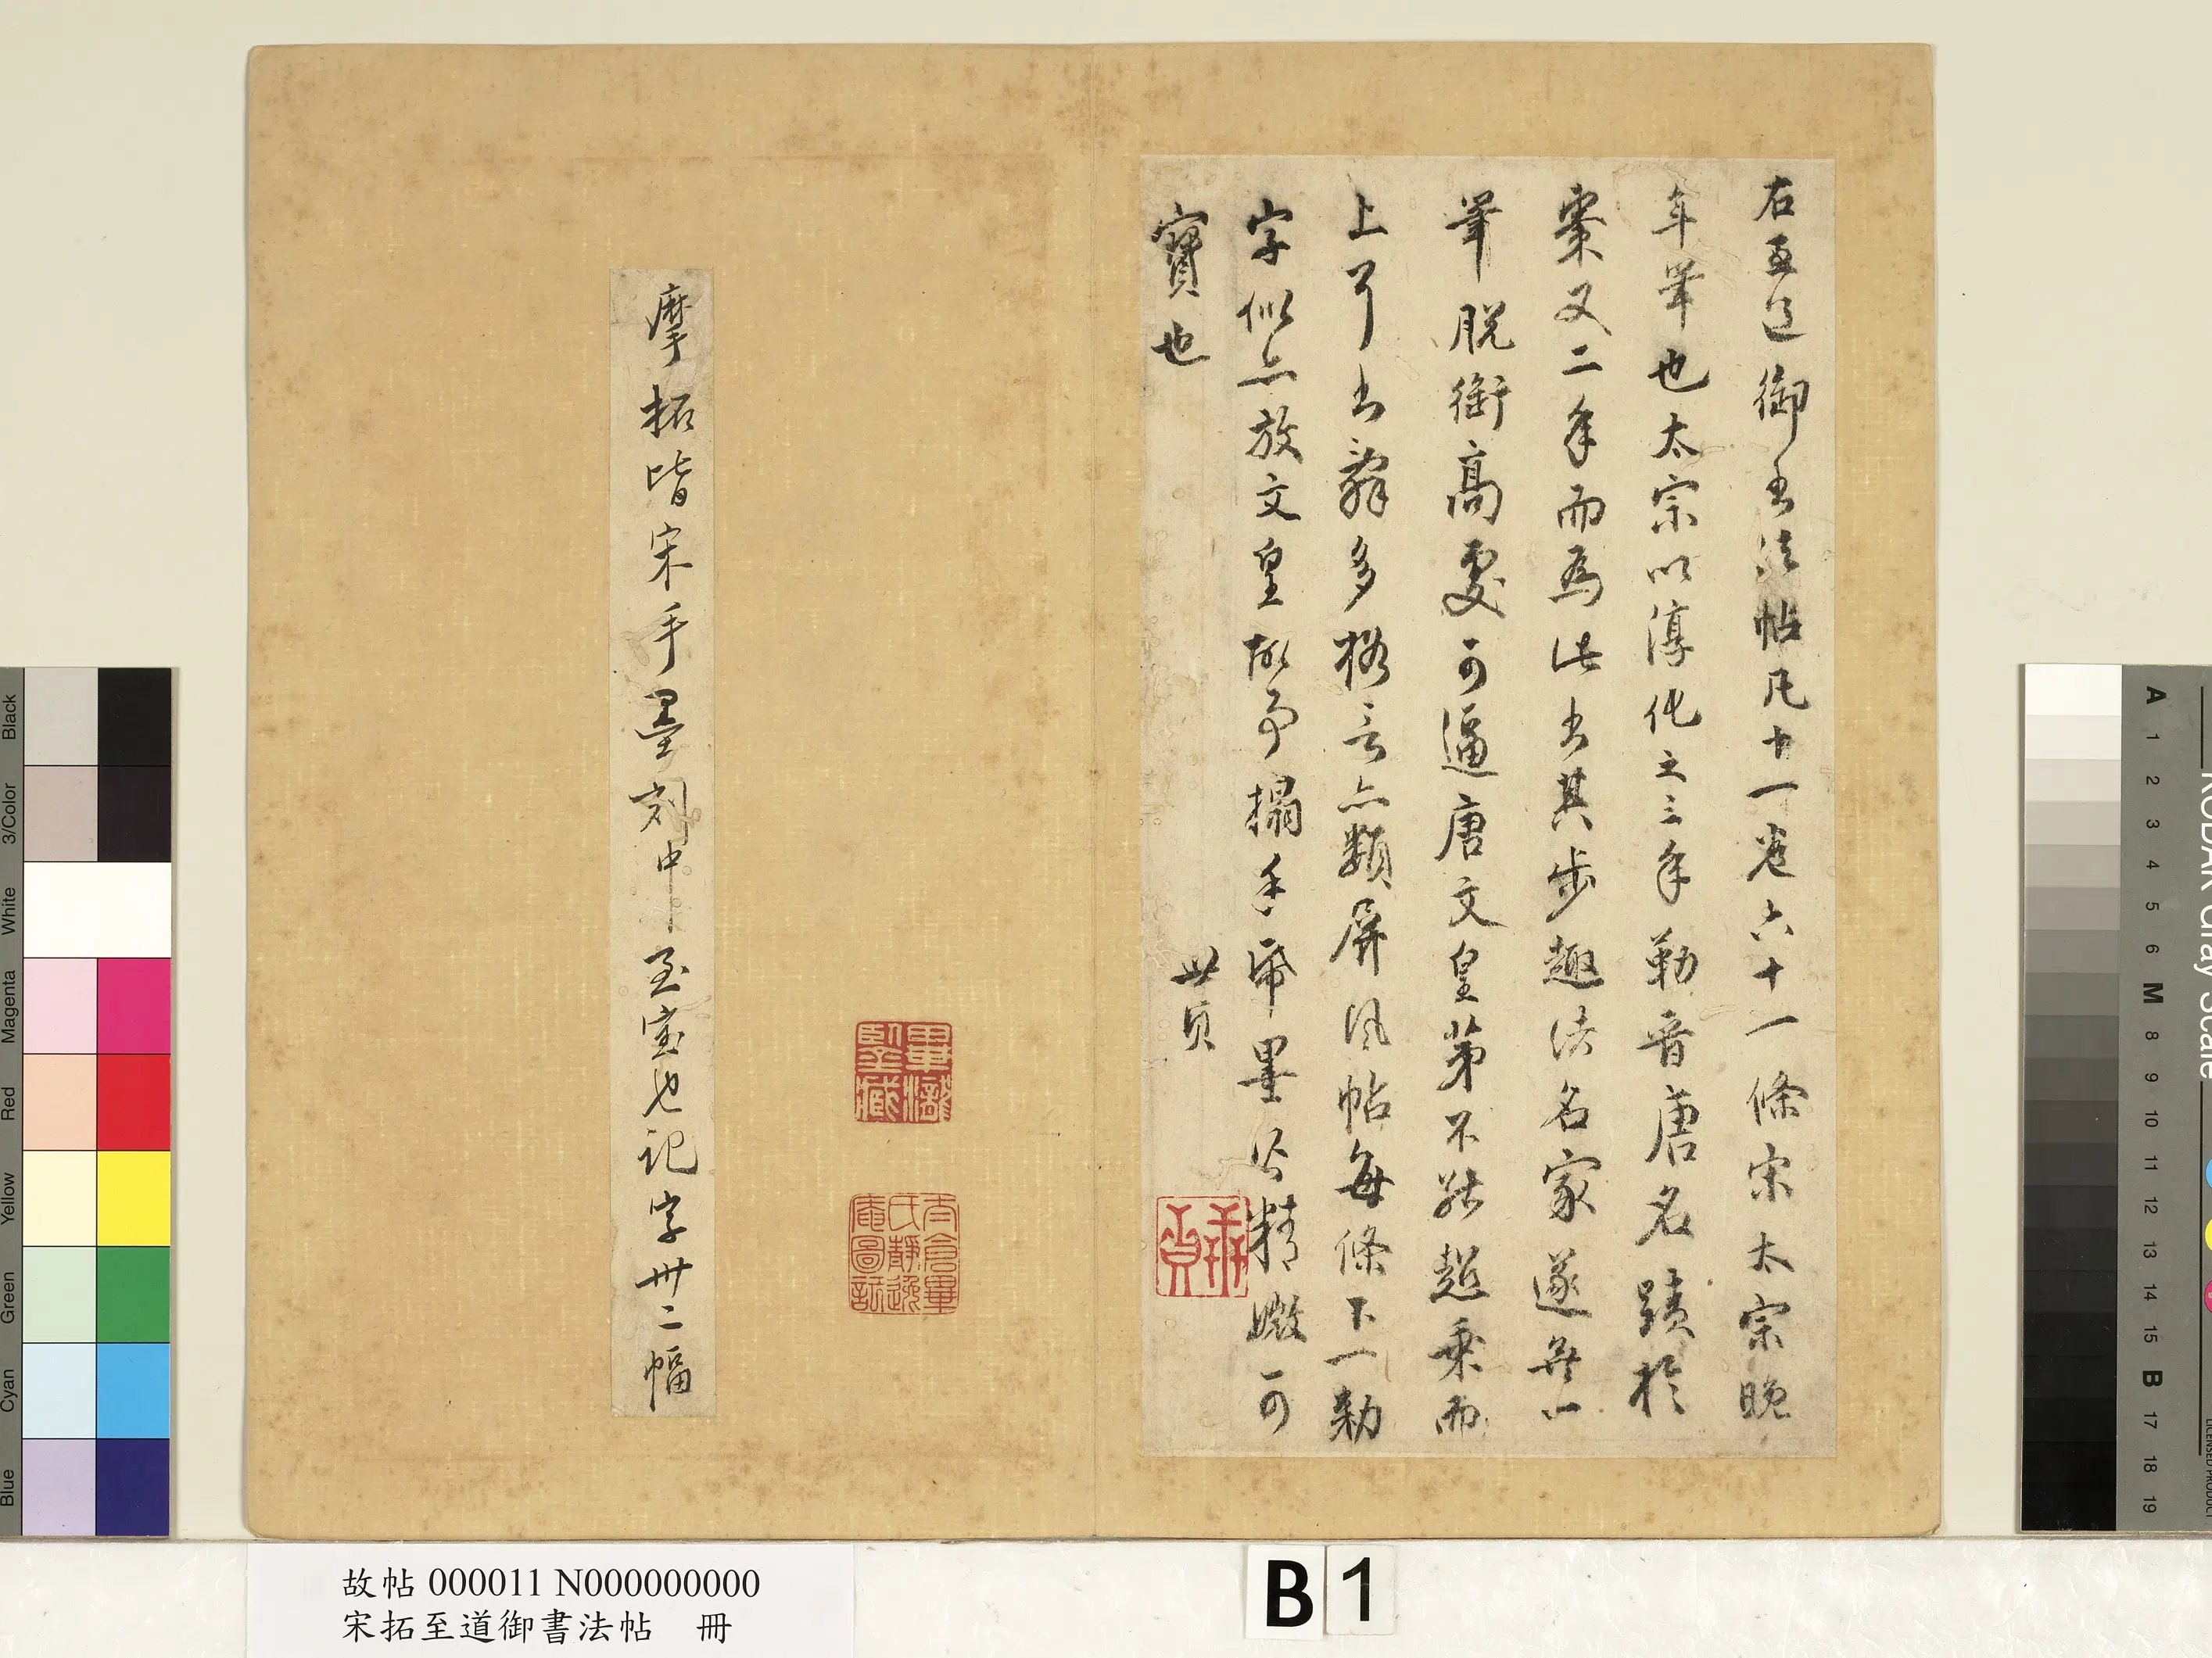 右至道御書法帖凡十一卷六十一條宋太宗晚
年筆也太宗以淳化之三年勒晉唐名蹟於
棗又二年而為此書其步趨法名家遂無一
筆脫銜高處可逼唐文皇第不能超乘而
上耳書辭多格言亦類屏風帖每條下一勅
字似亦放文皇故事搨手帋墨精可
寶也 世貞
畢瀧鑒藏
太倉畢氏靜逸庵圖記
摩拓皆宋手墨刻中至寶也記字卅二幅
故帖 000011 N000000000
宋拓至道御書法帖 冊
B 1
Black
3/Color
White
Magenta
Red
Yellow
Green
Cyan
Blue
KODAK Gray Scale
A 1 2 3 4 5 6 M 8 9 10 11 12 13 14 15 B 17 18 19